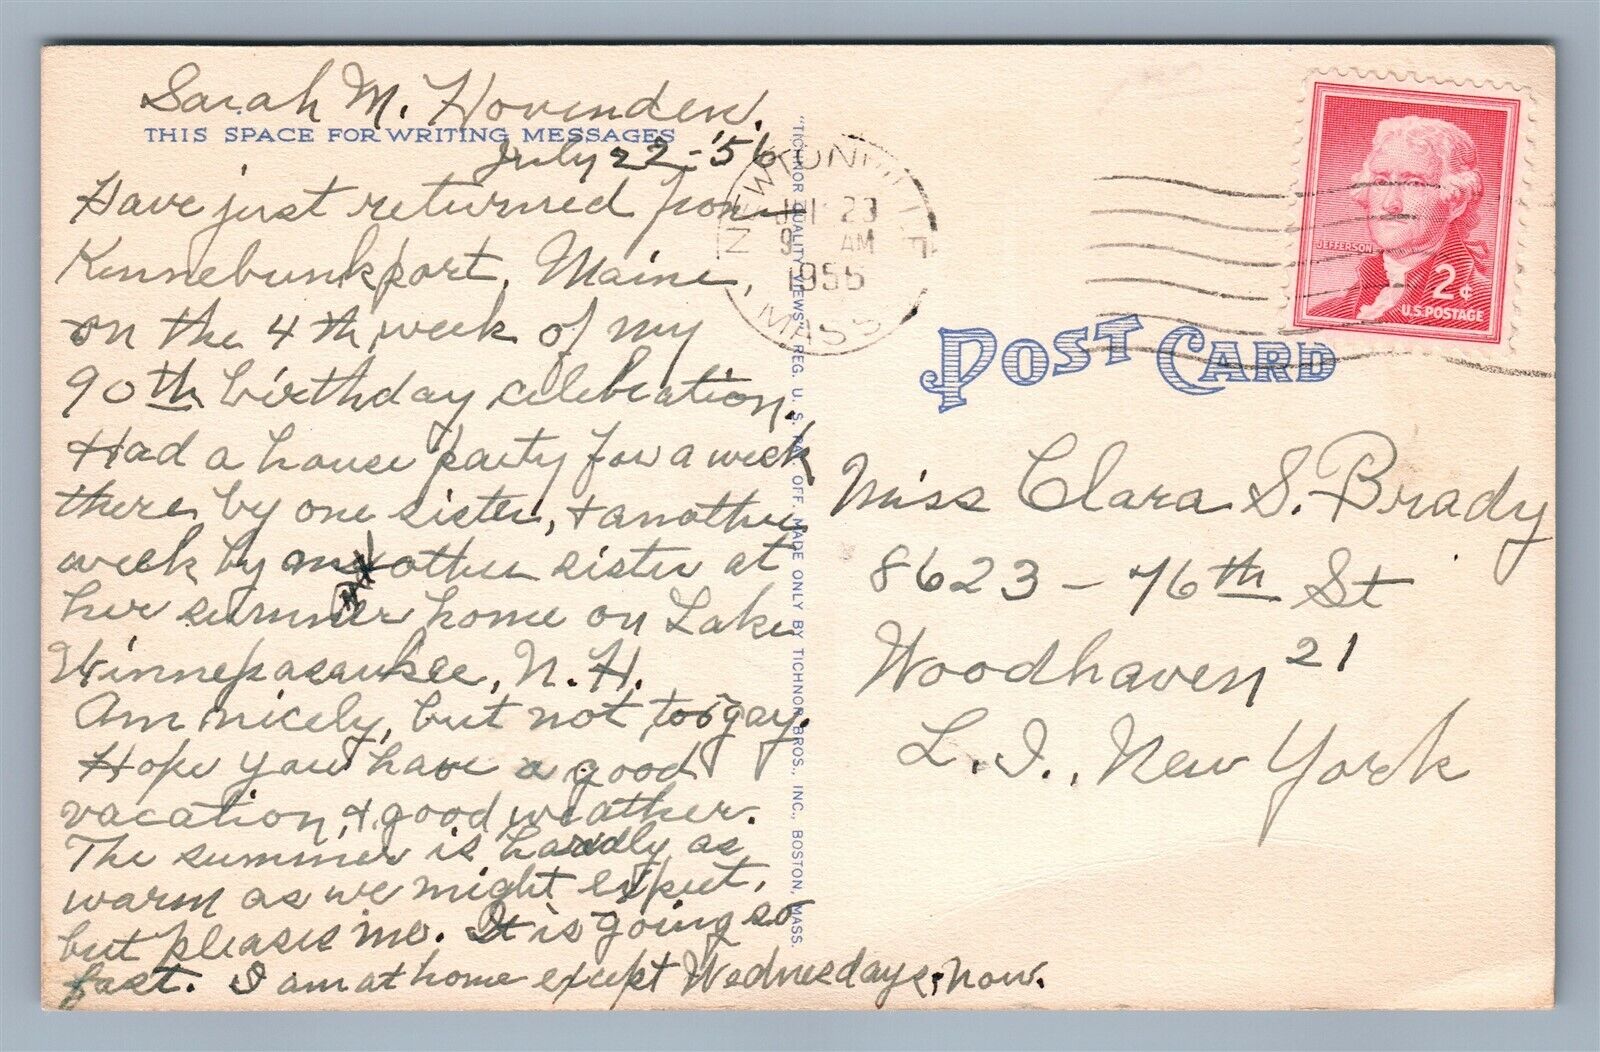 Sarah M. Hovenden.
THIS SPACE FOR WRITING MESSAGES
July 22-'56
Have just returned from
Kennebunkport, Maine,
on the 4th week of my
90th birthday celebration.
Had a house party for a week
there by one sister, + another
week by other sister at
her summer home on Lake
Winnepasaukee, N.H.
Am nicely, but not too gay.
Hope you have a good
vacation, + good weather.
The summer is hardly as
warm as we might expect,
but pleases me. It is going so
fast. I am at home except Wednesdays, now.
"TICHNOR QUALITY VIEWS," REG. U. S. PAT. OFF. MADE ONLY BY TICHNOR BROS., INC., BOSTON, MASS.
JUL 23
9 AM
1956
MASS
JEFFERSON
2¢
U.S. POSTAGE
POST CARD
Miss Clara S. Brady
8623 - 76th St
Woodhaven 21
L.I., New York